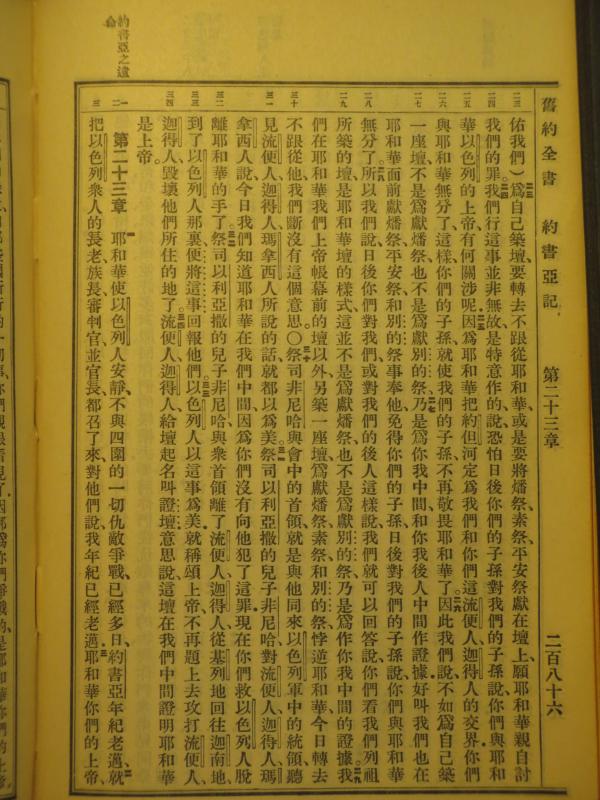 舊約全書　約書亞記　第二十三章　二百八十六
佑我們）爲自己築壇要轉去不跟從耶和華或是要將燔祭素祭平安祭獻在壇上願耶和華親自討
我們的罪我們行這事並非無故是特意作的說恐怕日後你們的子孫對我們的子孫說你們與耶和
華以色列的上帝有何關涉呢因爲耶和華把約但河定爲我們和你們這流便人迦得人的交界你們
與耶和華無分了這樣你們的子孫就使我們的子孫不再敬畏耶和華了因此我們說不如爲自己築
一座壇不是爲獻燔祭也不是爲獻別的祭乃是爲你我中間和你我後人中間作證據好叫我們也在
耶和華面前獻燔祭平安祭和別的祭事奉他免得你們的子孫日後對我們的子孫說你們與耶和華
無分了所以我們說日後你們對我們或對我們的後人這樣說我們就可以回答說你們看我們列祖
所築的壇是耶和華壇的樣式這並不是爲獻燔祭也不是爲獻別的祭乃是爲作你我中間的證據我
們在耶和華我們上帝帳幕前的壇以外另築一座壇爲獻燔祭素祭和別的祭悖逆耶和華今日轉去
不跟從他我們斷沒有這個意思○祭司非尼哈與會中的首領就是與他同來以色列軍中的統領聽
見流便人迦得人瑪拿西人所說的話就都以爲美祭司以利亞撒的兒子非尼哈對流便人迦得人瑪
拿西人說今日我們知道耶和華在我們中間因爲你們沒有向他犯了這罪現在你們救以色列人脫
離耶和華的手了祭司以利亞撒的兒子非尼哈與衆首領離了流便人迦得人從基列地回往迦南地
到了以色列人那裏便將這事回報他們以色列人以這事爲美就稱頌上帝不再題上去攻打流便人
迦得人毀壞他們所住的地了流便人迦得人給壇起名叫證壇意思說這壇在我們中間證明耶和華
是上帝。
第二十三章　耶和華使以色列人安靜不與四圍的一切仇敵爭戰已經多日約書亞年紀老邁就
把以色列衆人的長老族長審判官並官長都召了來對他們說我年紀已經老邁耶和華你們的上帝